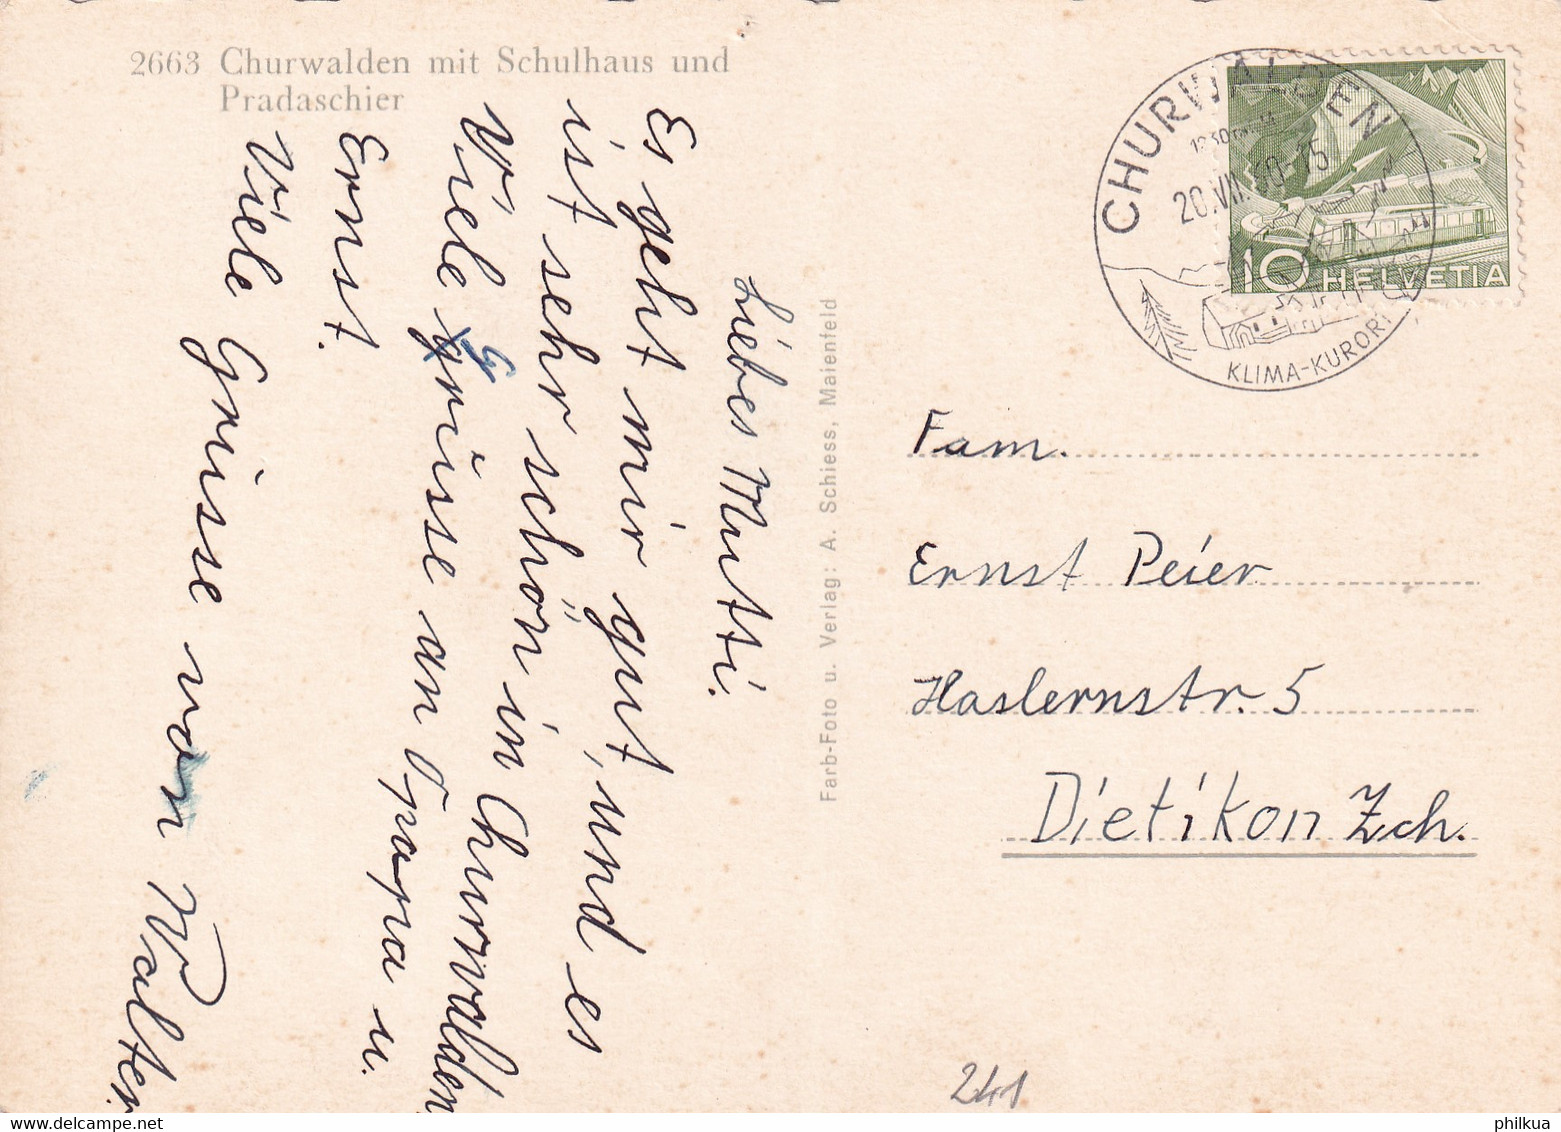 2663 Churwalden mit Schulhaus und
Pradaschier
Liebes Mutti.
Es geht mir gut, und es
ist sehr schön in Churwalden
Viele Grüsse an Opapa u.
Ernst.
Viele Grüsse von Walter
Farb-Foto u. Verlag: A. Schiess, Maienfeld
CHURWALDEN
20.VII.
KLIMA-KURORT
10 HELVETIA
Fam.
Ernst Peier
Haslernstr. 5
Dietikon Zch.
241
philkua
www.delcampe.net